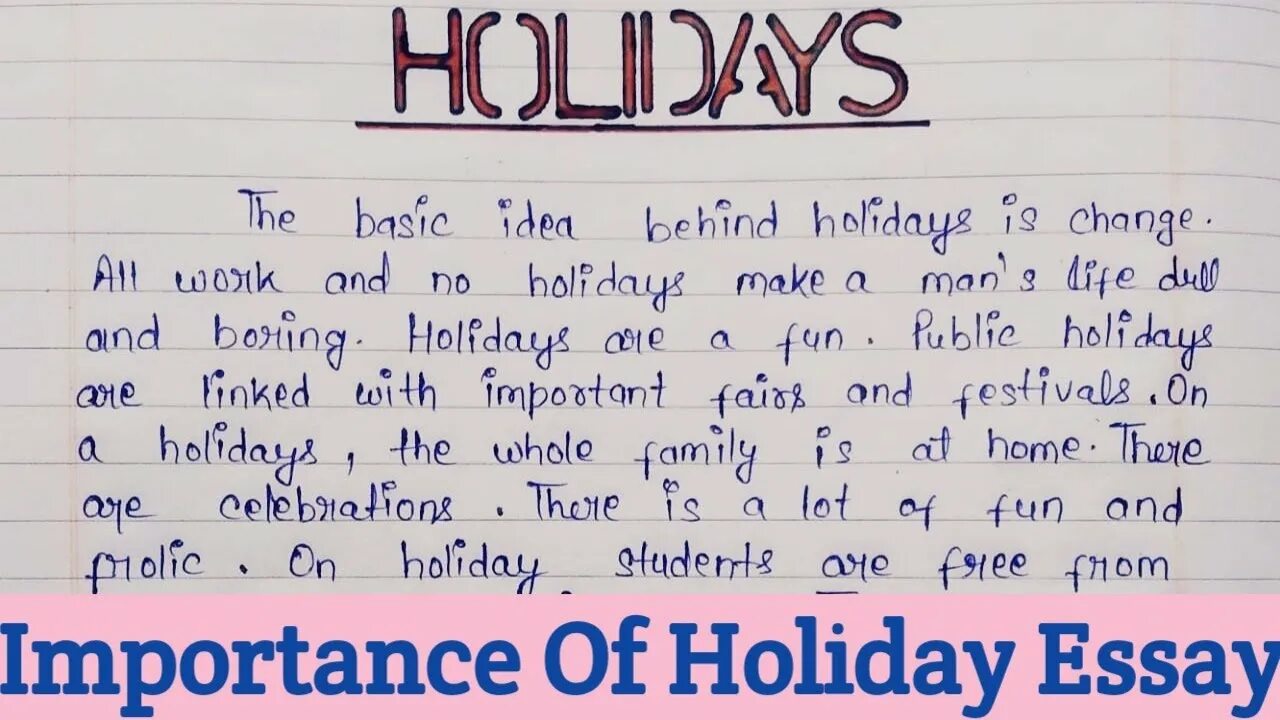 HOLIDAYS
The basic idea behind holidays is change.
All work and no holidays make a man's life dull
and boring. Holidays are a fun. Public holidays
are linked with important fairs and festivals. On
a holidays, the whole family is at home. There
are celebrations. There is a lot of fun and
frolic. On holiday students are free from
Importance Of Holiday Essay